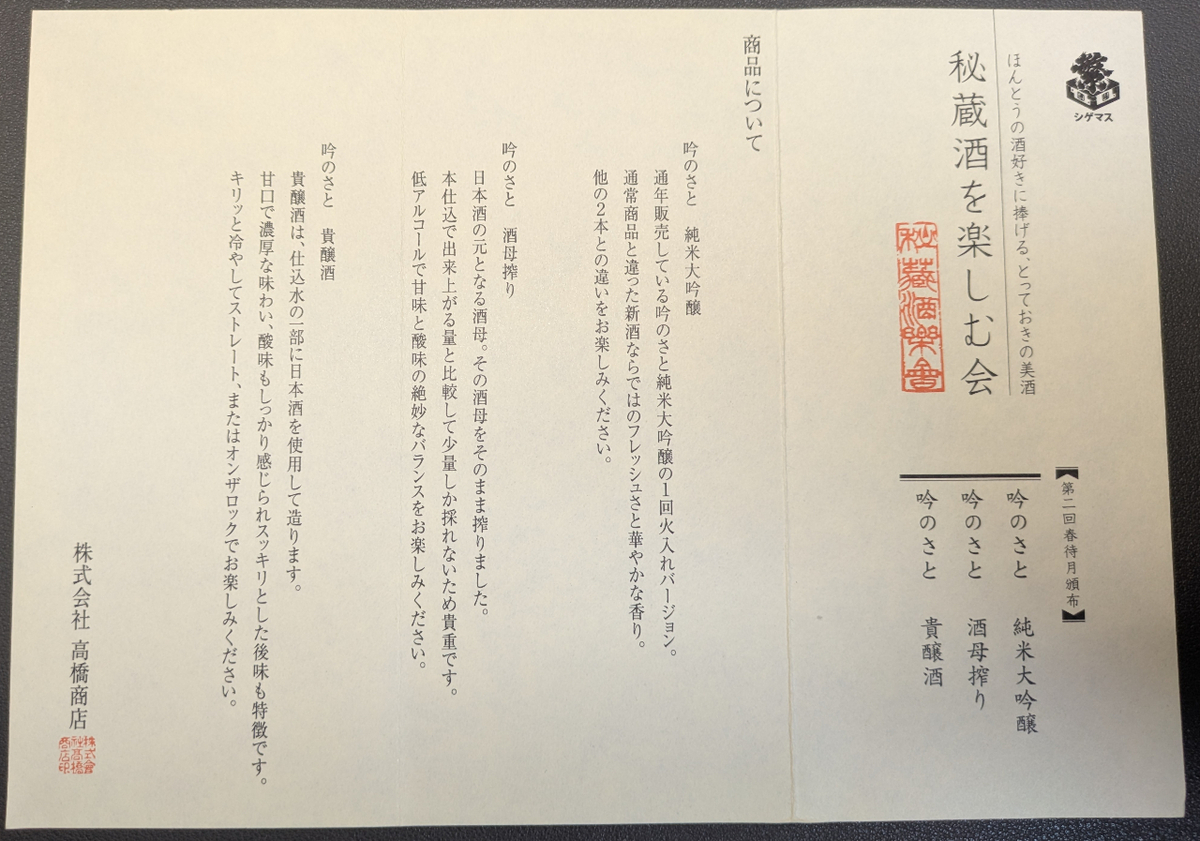 繁
シゲマス
ほんとうの酒好きに捧げる、とっておきの美酒
秘蔵酒を楽しむ会
秘蔵酒楽會
【第二回春待月頒布】
吟のさと 純米大吟醸
吟のさと 酒母搾り
吟のさと 貴醸酒
商品について
吟のさと 純米大吟醸
通年販売している吟のさと純米大吟醸の1回火入れバージョン。
通常商品と違った新酒ならではのフレッシュさと華やかな香り。
他の2本との違いをお楽しみください。
吟のさと 酒母搾り
日本酒の元となる酒母。その酒母をそのまま搾りました。
本仕込で出来上がる量と比較して少量しか採れないため貴重です。
低アルコールで甘味と酸味の絶妙なバランスをお楽しみください。
吟のさと 貴醸酒
貴醸酒は、仕込水の一部に日本酒を使用して造ります。
甘口で濃厚な味わい、酸味もしっかり感じられスッキリとした後味も特徴です。
キリッと冷やしてストレート、またはオンザロックでお楽しみください。
株式会社 高橋商店
株式會社高橋商店印